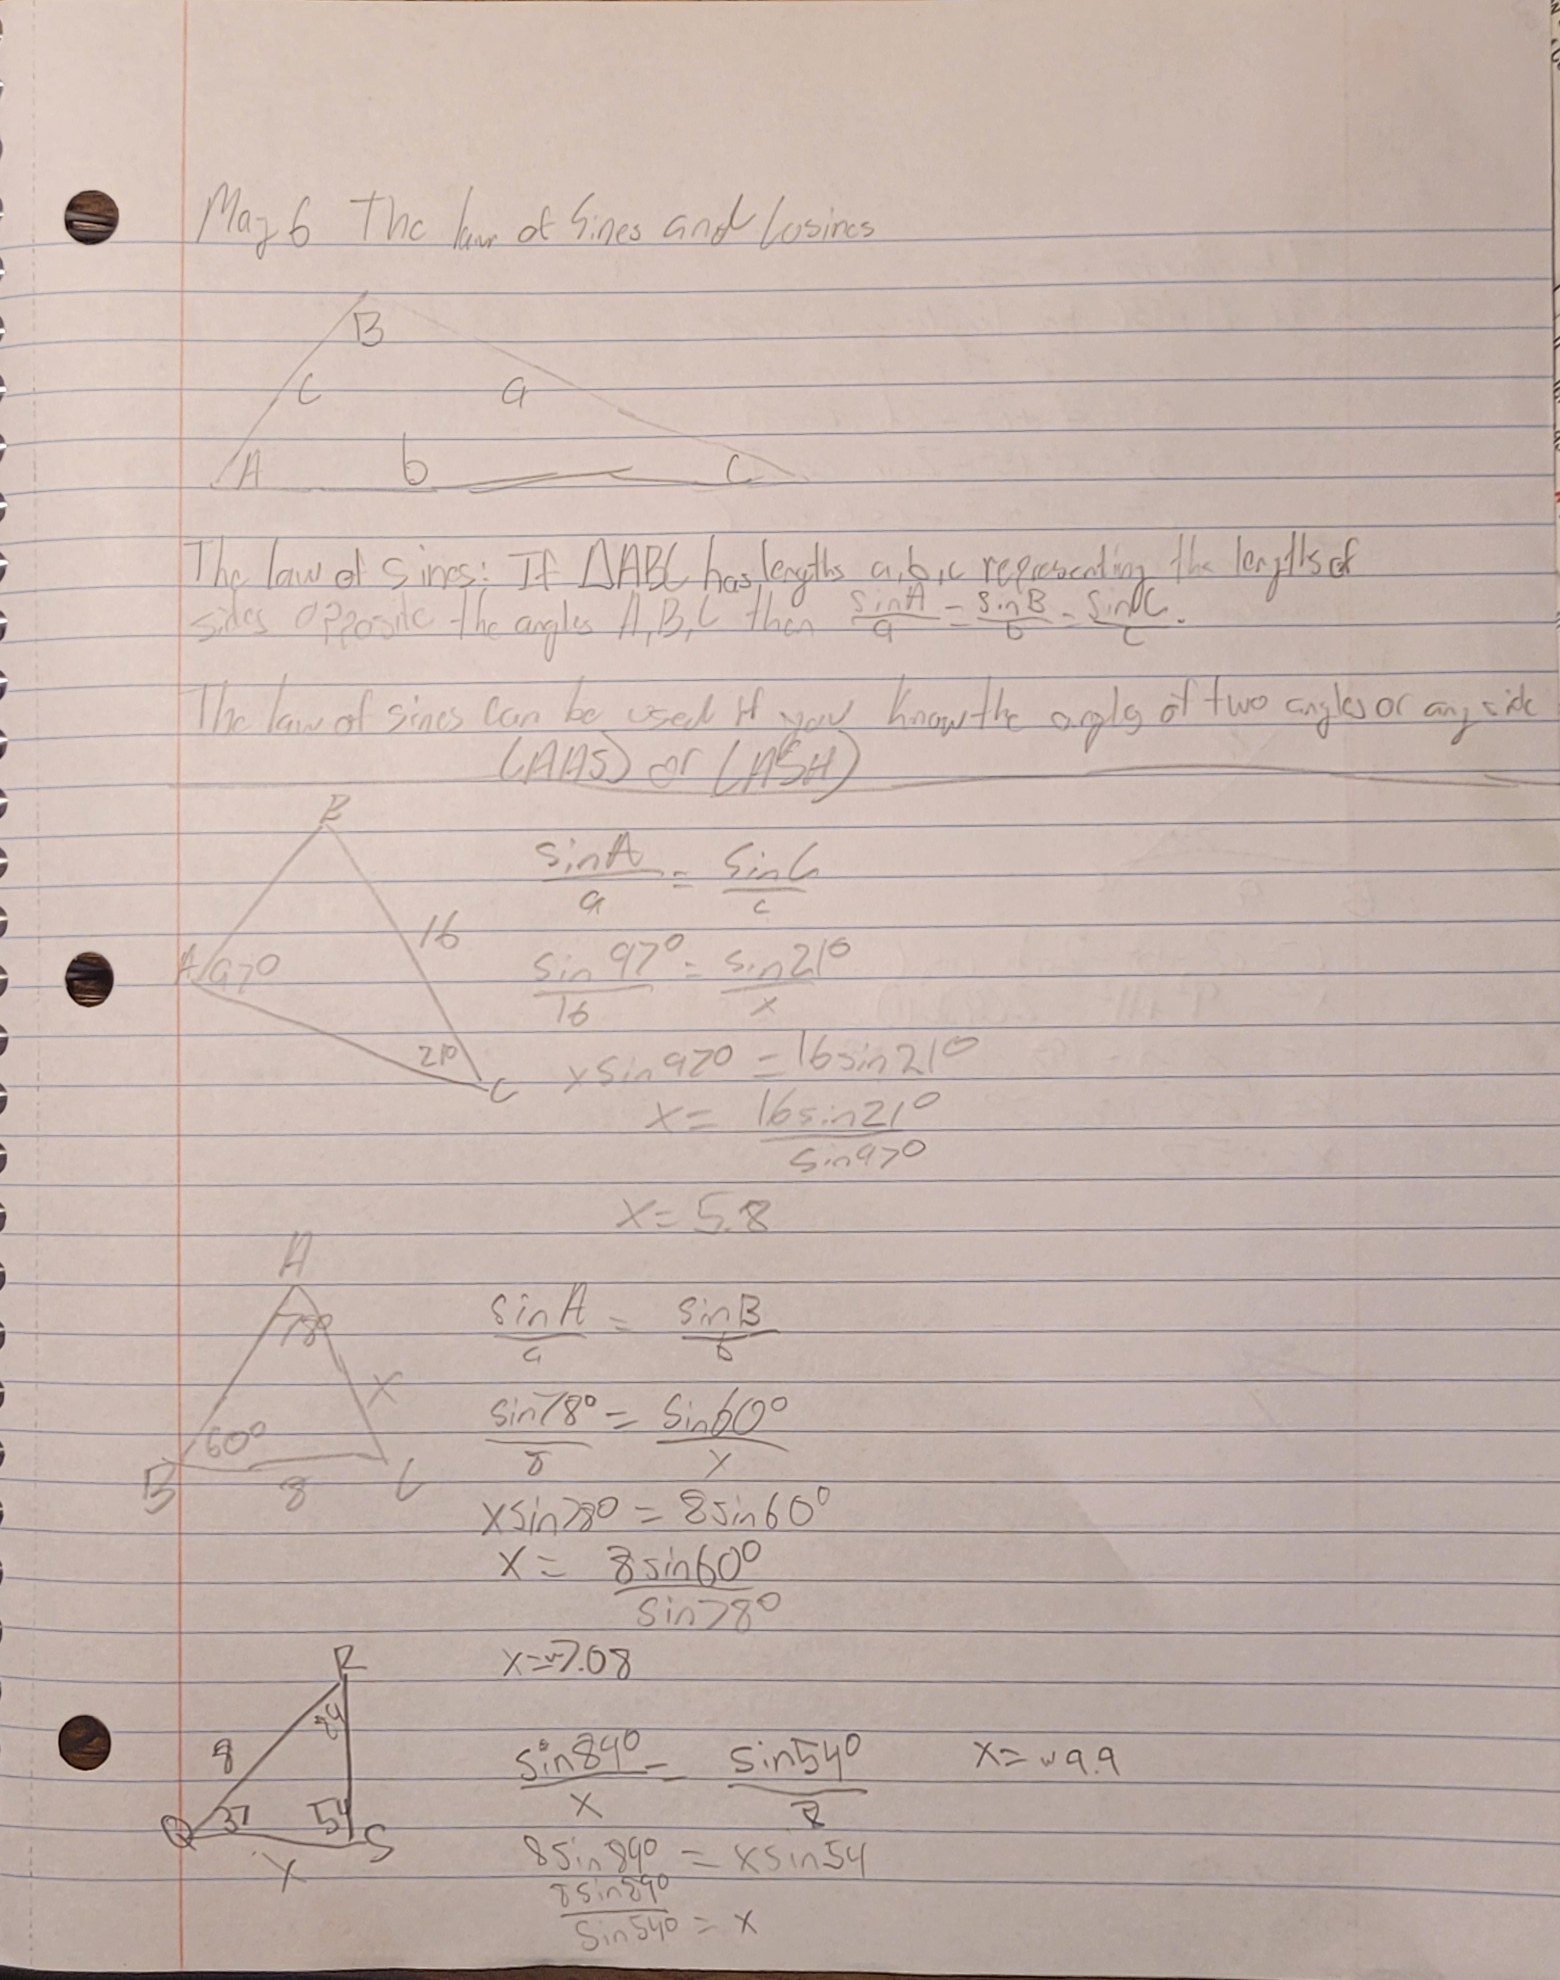 May 6 The law of Sines and Cosines
B
c a
A b C
The law of Sines: If ΔABC has lengths a,b,c representing the lengths of
sides opposite the angles A,B,C then sinA/a = sinB/b = sinC/c.
The law of sines can be used if you know the angle of two angles or any side
(AAS) or (ASA)
B
16
A 97°
21°
C
sinA/a = sinC/c
sin 97°/16 = sin21°/x
x sin 97° = 16 sin21°
x = 16sin21°/sin97°
x = 5.8
A
78°
x
60°
B 8 C
sinA/a = sinB/b
sin78°/8 = sin60°/x
xsin78° = 8sin60°
x = 8sin60°/sin78°
x = ~7.08
R
89
8
Q 37 54 S
x
sin89°/x = sin54°/8
x = ~9.9
8sin89° = xsin54
8sin89°/sin54° = x